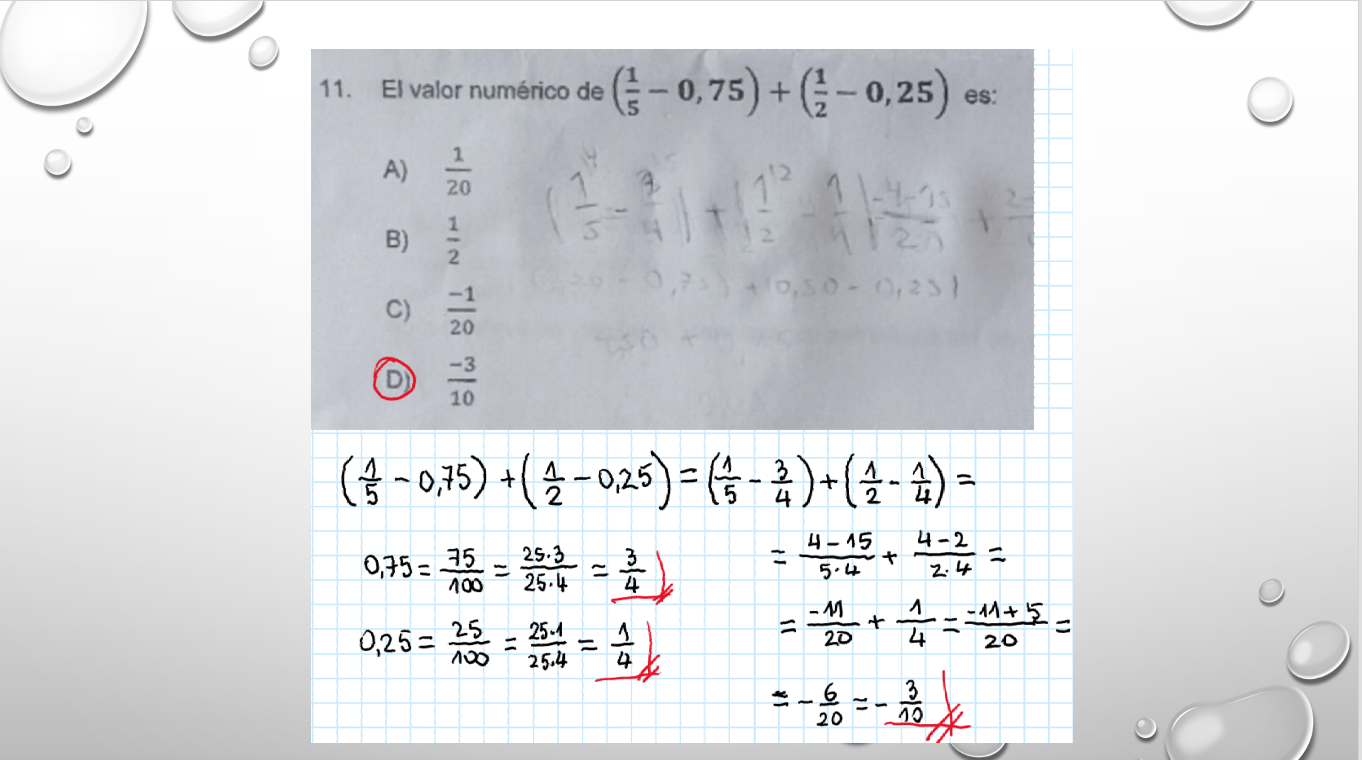 11. El valor numérico de (1/5 − 0,75) + (1/2 − 0,25) es:
A) 1/20
B) 1/2
C) −1/20
D) −3/10
(1/5 − 0,75) + (1/2 − 0,25) = (1/5 − 3/4) + (1/2 − 1/4) =
0,75 = 75/100 = 25·3/25·4 = 3/4
= 4−15/5·4 + 4−2/2·4 =
0,25 = 25/100 = 25·1/25·4 = 1/4
= −11/20 + 1/4 = −11+5/20 =
= −6/20 = −3/10